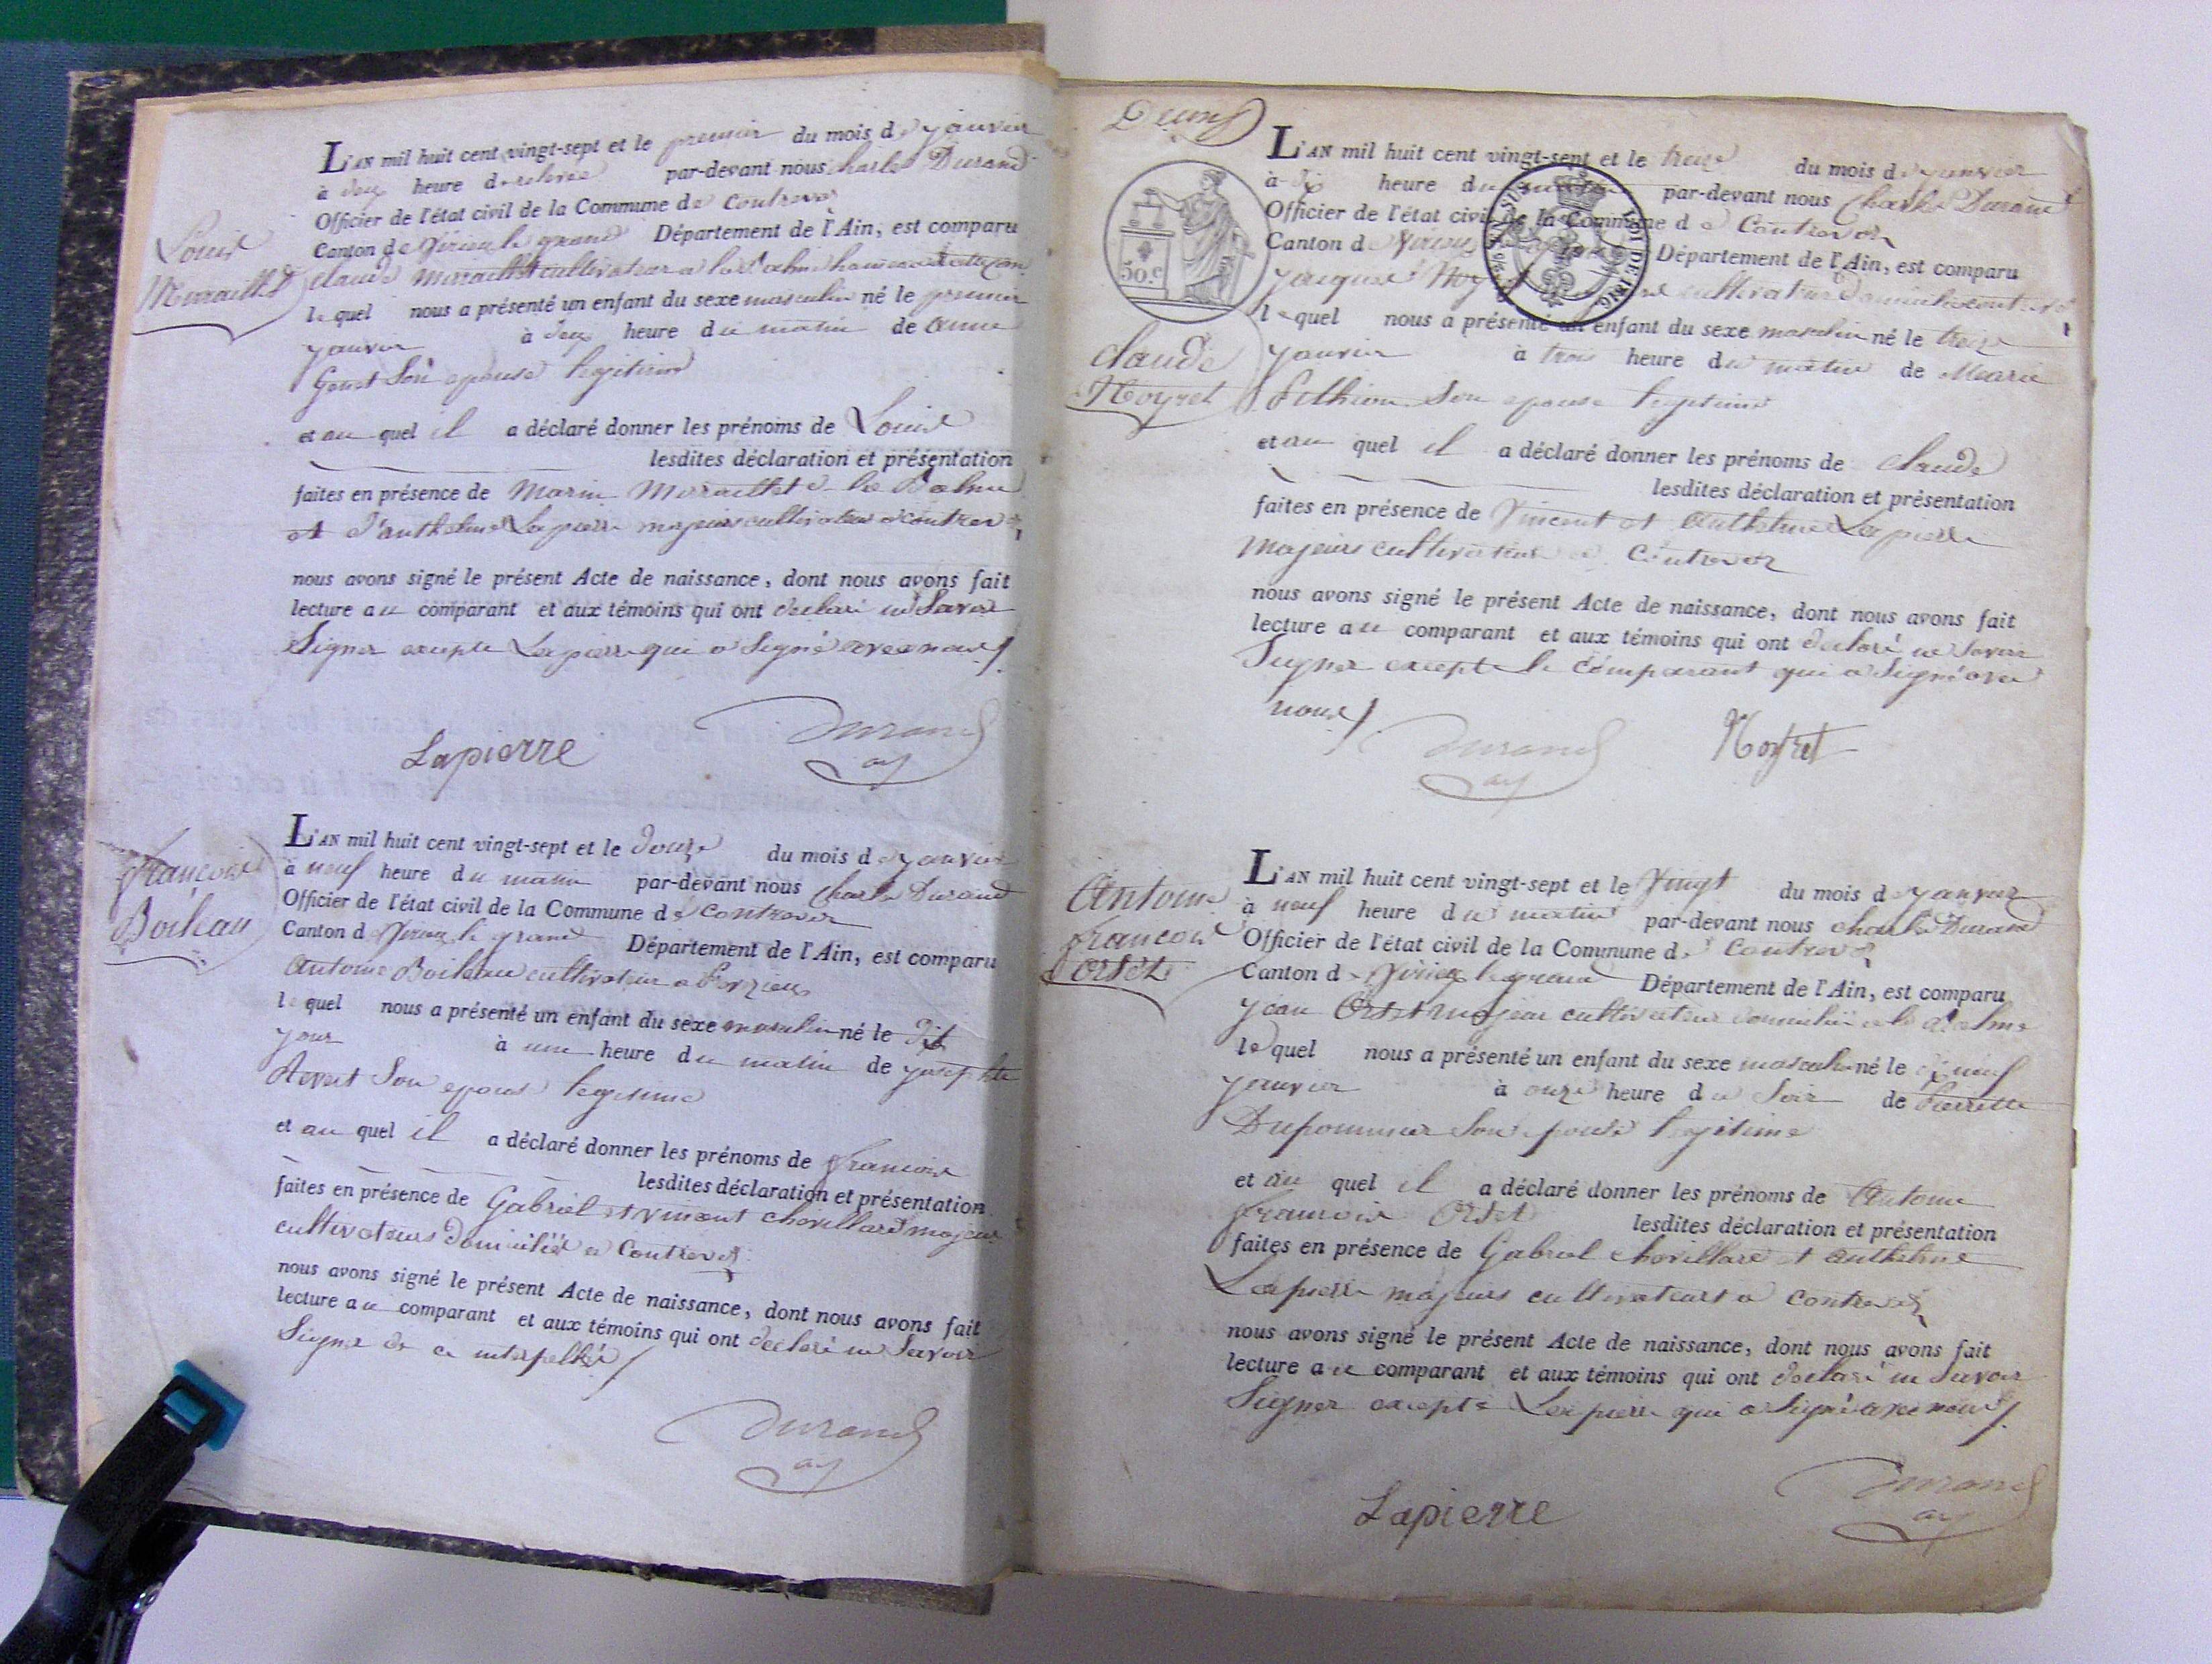 Louis
Mirailliet
L'AN mil huit cent vingt-sept et le premier du mois de janvier
à deux heure de relevée par-devant nous charle Durand
Officier de l'état civil de la Commune de Contrevoz
Canton de Virieu le grand Département de l'Ain, est comparu
claude cultivateur a la Balme
lequel nous a présenté un enfant du sexe masculin né le premier
janvier à deux heure du matin de anne
son epouse legitime
et au quel il a déclaré donner les prénoms de Louis
lesdites déclaration et présentation
faites en présence de Marin la Balme
et d'anthelme Lapierre majeurs cultivateur a Contrevoz
nous avons signé le présent Acte de naissance, dont nous avons fait
lecture au comparant et aux témoins qui ont declaré ne savoir
Signer excepte Lapierre qui a Signé avec nous
Lapierre Durand
francois
Boileau
L'AN mil huit cent vingt-sept et le douze du mois de janvier
à neuf heure du matin par-devant nous Charle Durand
Officier de l'état civil de la Commune de Contrevoz
Canton de Virieu le grand Département de l'Ain, est comparu
antoine Boileau cultivateur a
lequel nous a présenté un enfant du sexe masculin né le dit
jour à une heure du matin de josephte
son epouse legitime
et au quel il a déclaré donner les prénoms de francois
lesdites déclaration et présentation
faites en présence de Gabriel et vincent chovillard majeur
cultivateurs domicilié a Contrevoz
nous avons signé le présent Acte de naissance, dont nous avons fait
lecture au comparant et aux témoins qui ont declaré ne Savoir
Signe de ce interpellés
Durand
Deux
50.c
L'AN mil huit cent vingt-sept et le treize du mois de janvier
à dix heure du matin par-devant nous Charle Durand
Officier de l'état civil de la Commune de Contrevoz
Canton de Virieu Département de l'Ain, est comparu
jacques cultivateur domicilié a contrevoz
lequel nous a présenté un enfant du sexe masculin né le treize
janvier à trois heure du matin de Marie
son epouse legitime
claude
Noyret
et au quel il a déclaré donner les prénoms de claude
lesdites déclaration et présentation
faites en présence de Vincent et anthelme Lapierre
majeurs cultivateur a Contrevoz
nous avons signé le présent Acte de naissance, dont nous avons fait
lecture au comparant et aux témoins qui ont declaré ne savoir
Signer excepte le comparant qui a Signé avec
nous
Durand Noyret
antoine
francois
Orset
L'AN mil huit cent vingt-sept et le Vingt du mois de janvier
à neuf heure du matin par-devant nous charle Durand
Officier de l'état civil de la Commune de Contrevoz
Canton de Virieu le grand Département de l'Ain, est comparu
jean Orset majeur cultivateur domicilié a la Balme
lequel nous a présenté un enfant du sexe masculin né le dix neuf
janvier à onze heure du Soir de Pierrette
son epouse legitime
et au quel il a déclaré donner les prénoms de antoine
francois Orset lesdites déclaration et présentation
faites en présence de Gabriel chovillard et anthelme
Lapierre majeurs cultivateurs a contrevoz
nous avons signé le présent Acte de naissance, dont nous avons fait
lecture au comparant et aux témoins qui ont declaré ne Savoir
Signer excepte Lapierre qui a Signé avec nous
Lapierre Durand